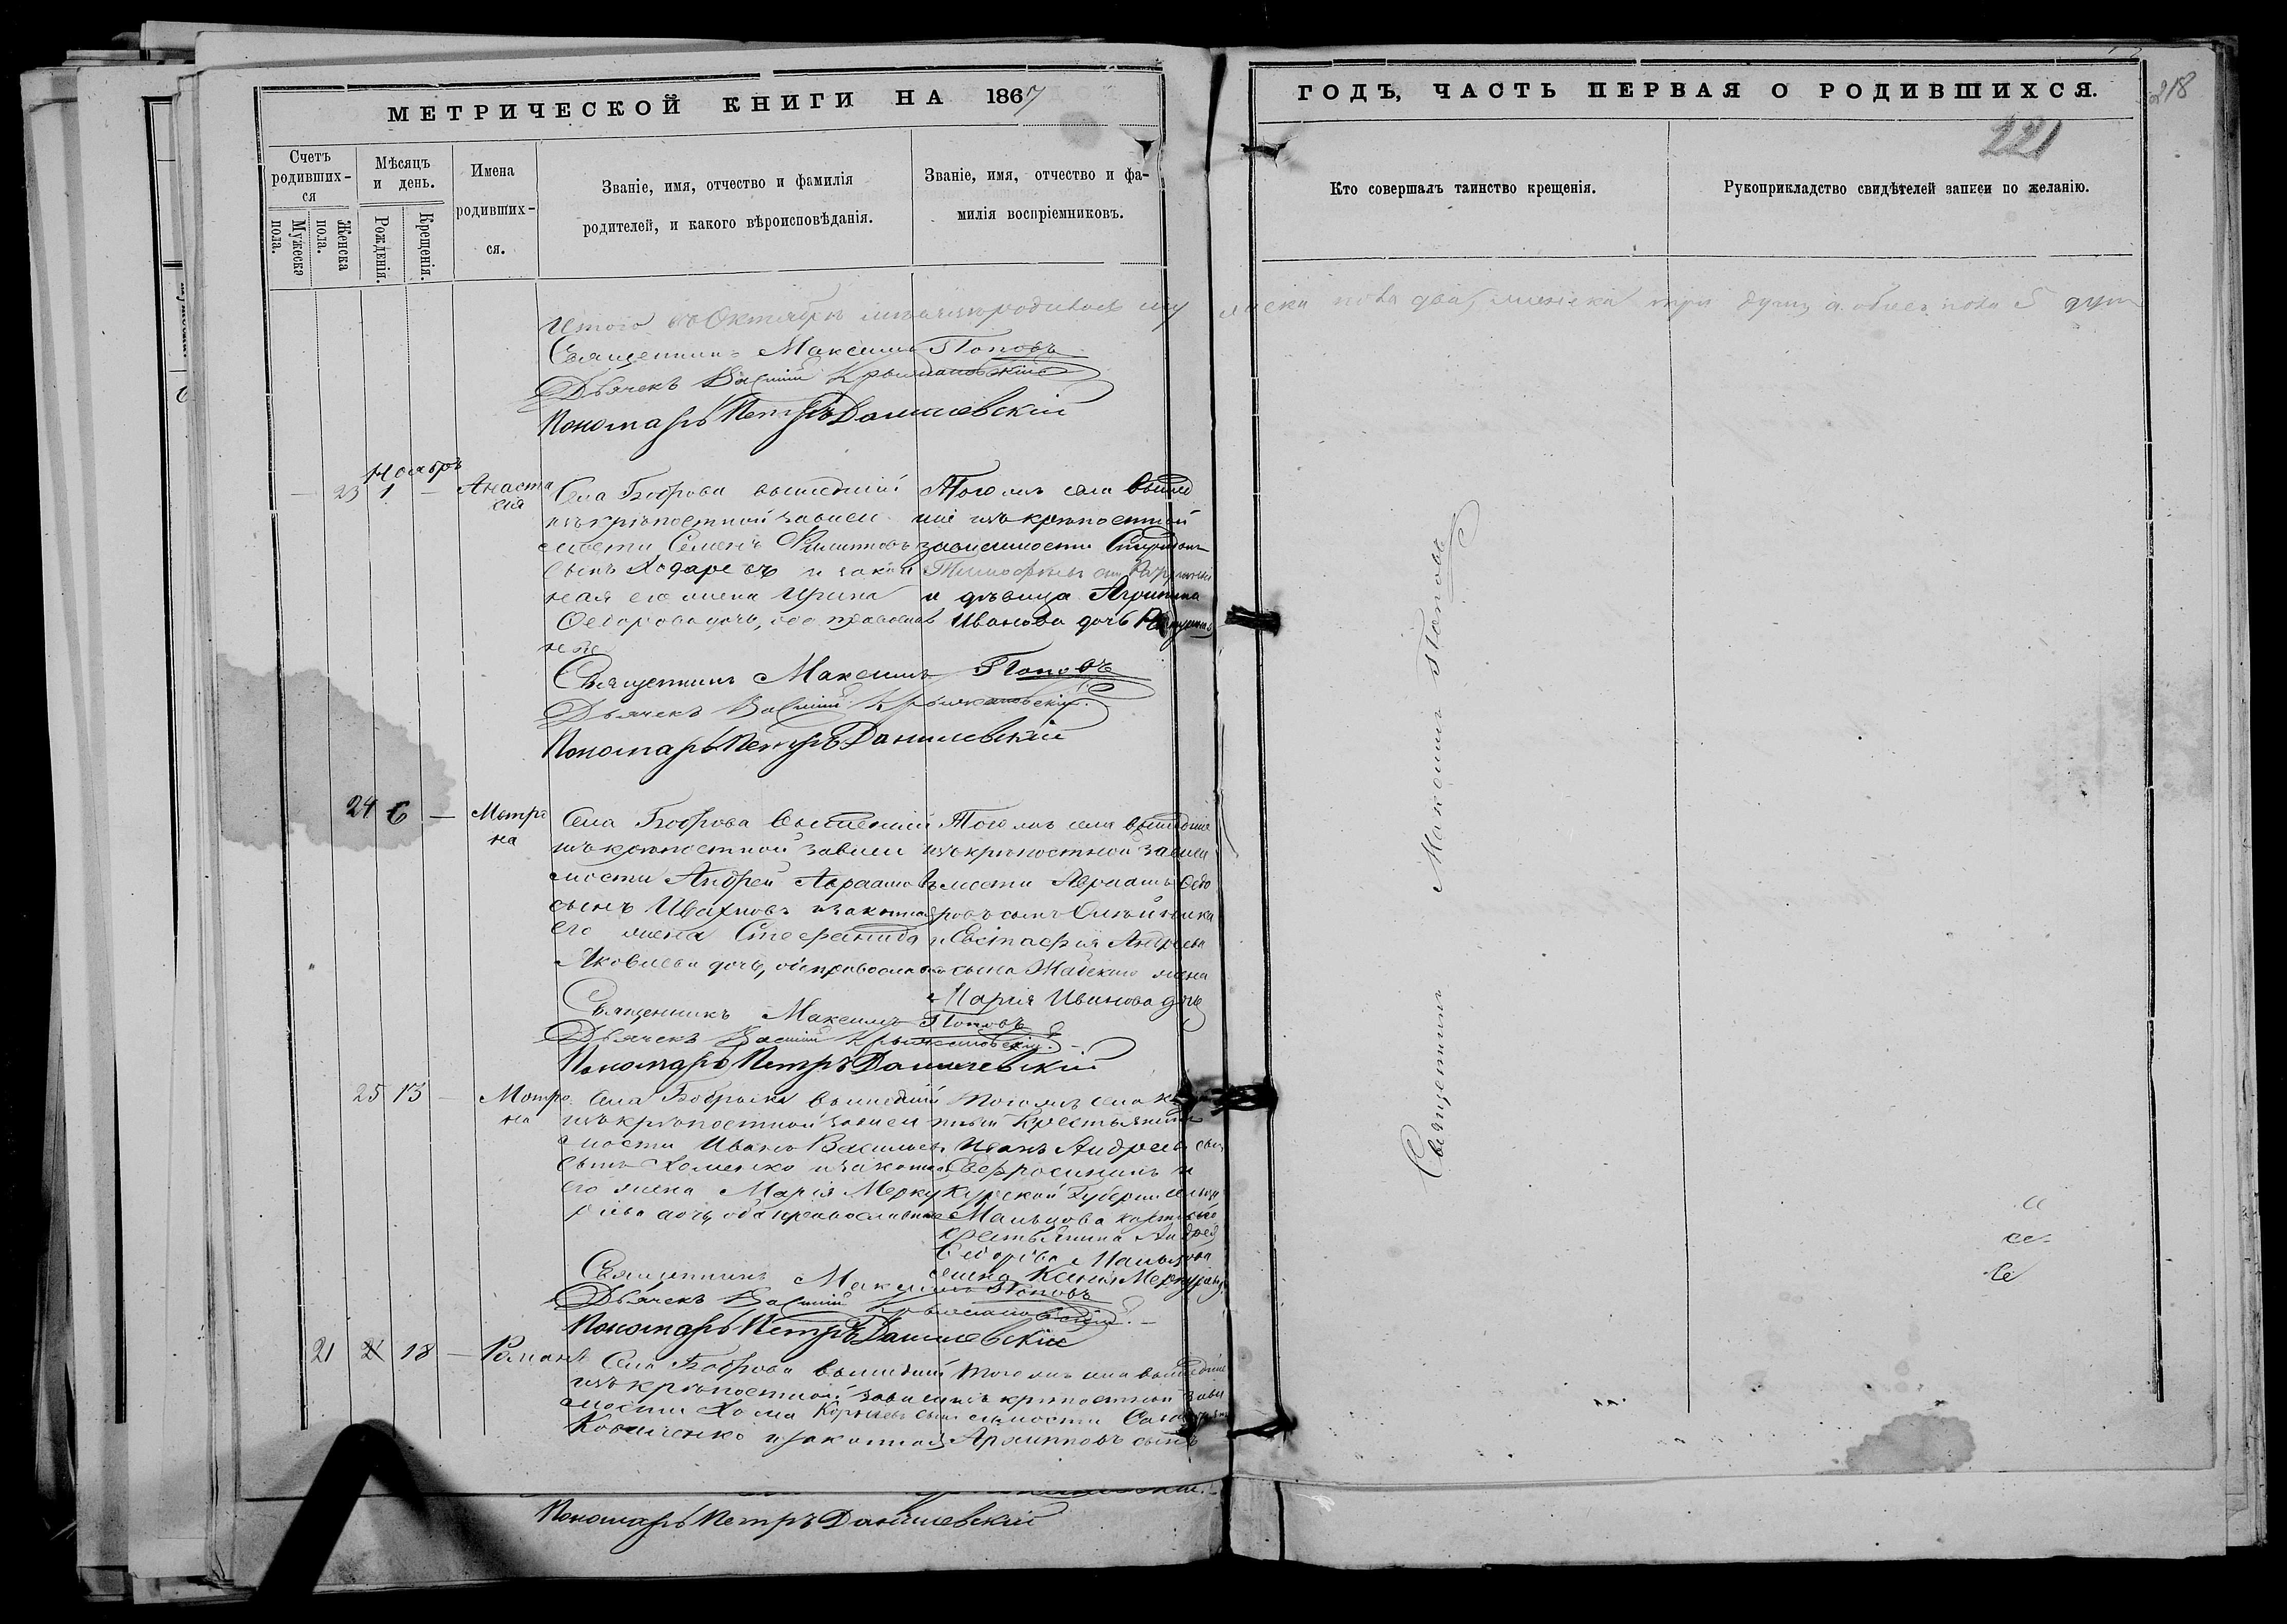 МЕТРИЧЕСКОЙ КНИГИ НА 1867
ГОДЪ, ЧАСТЬ ПЕРВАЯ О РОДИВШИХСЯ.
218
221
Счетъ родивших-ся
Мужеска пола.
Женска пола.
Мѣсяцъ и день.
Рожденія.
Крещенія.
Имена родивших-ся.
Званіе, имя, отчество и фамилія родителей, и какого вѣроисповѣданія.
Званіе, имя, отчество и фа-милія воспріемниковъ.
Кто совершалъ таинство крещенія.
Рукоприкладство свидѣтелей записи по желанію.
Итого въ Октябрѣ родилось
пола два, женска три душ, а обоего пола 5 душ
Священникъ Максимъ Поповъ
Дьячекъ Василій
Пономарь Петръ Данилевскій
Ноябрь
23 1 — Анастасія
Села Боброва вышедшій
изъ крѣпостной зависи
мости Семенъ Филиповъ
сынъ Ходаревъ и закон
ная его жена Ирина
Ѳедорова дочь, оба православ
ные
Того жъ села вышед
шіе изъ крѣпостной
зависимости Спиридонъ
Тимоѳеевъ сынъ
и дѣвица Агрипина
Иванова дочь
Священникъ Максимъ Поповъ
Дьячекъ Василій
Пономарь Петръ Данилевскій
24 6 — Матрона
Села Боброва вышедшій
изъ крѣпостной зависи
мости Андрей Авраамовъ
сынъ Ивахновъ и законная
его жена Стефанида
Яковлева дочь, оба православные
Того жъ села вышедшіе
изъ крѣпостной зависи
мости Авраамъ Ѳедо
ровъ сынъ Олейника
и Евстафія Андреева
сына жена
Марія Иванова дочь
Священникъ Максимъ Поповъ
Дьячекъ Василій
Пономарь Петръ Данилевскій
25 13 — Матрона
Села Боброва вышедшій
изъ крѣпостной зависи
мости Иванъ Васильевъ
сынъ Хоменко и законная
его жена Марія Мерку
рьева дочь, оба православные
Того жъ села
крестьянинъ
Иванъ Андреевъ сынъ
и
Курской Губерніи
Мальцова
крестьянина Андрея
жена Ксенія Меркурьева
Священникъ Максимъ Поповъ
Дьячекъ Василій
Пономарь Петръ Данилевскій
21 18 — Романъ
Села Боброва вышедшій
изъ крѣпостной зависи
мости Хома сынъ
Коваленко и законная
Того жъ села вышедшіе
изъ крѣпостной зави
симости
Архиповъ сынъ
Священникъ Максимъ Поповъ
Пономарь Петръ Данилевскій